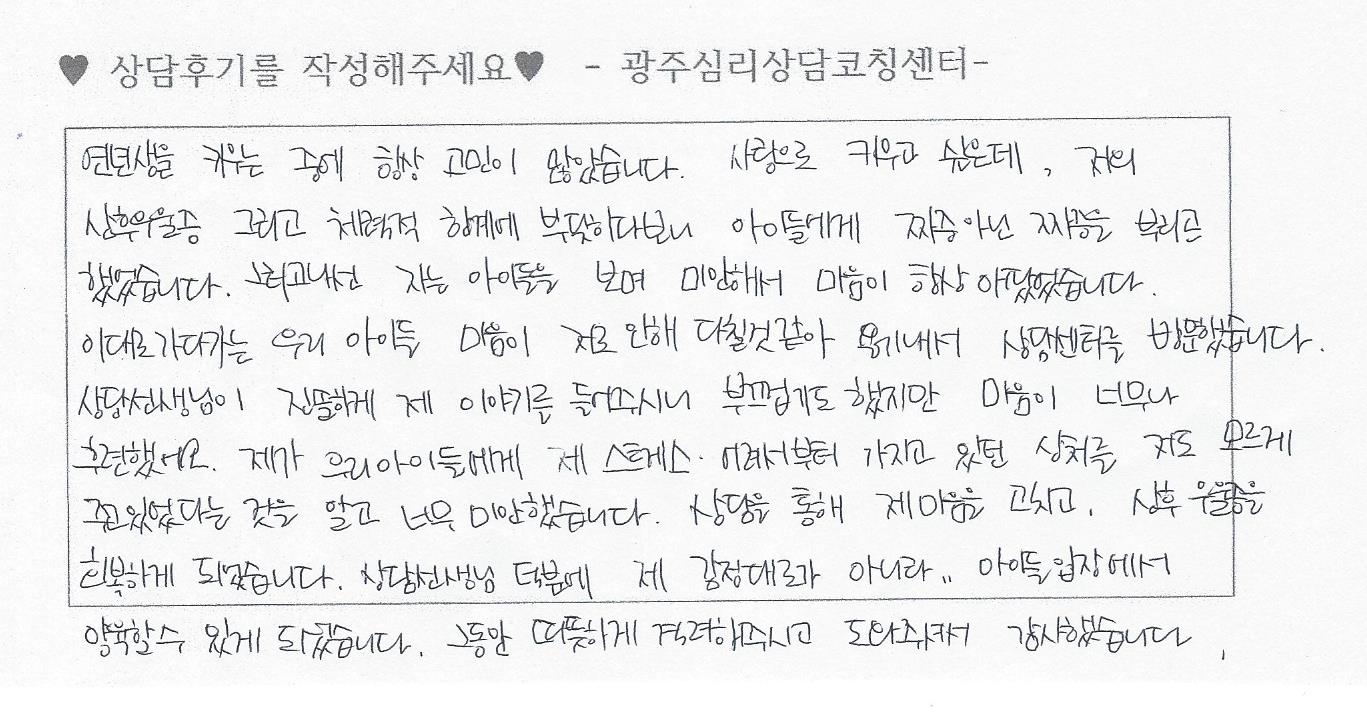 ♥ 상담후기를 작성해주세요♥ - 광주심리상담코칭센터-
연년생을 키우는 중에 항상 고민이 많았습니다. 사랑으로 키우고 싶은데, 저의
산후우울증 그리고 체력적 한계에 부딪히다보니 아이들에게 짜증아닌 짜증을 부리곤
했었습니다. 그리고나선 자는 아이들을 보며 미안해서 마음이 항상 아팠었습니다.
이대로가다가는 우리 아이들 마음이 저로 인해 다칠것같아 용기내서 상담센터를 방문했습니다.
상담선생님이 진솔하게 제 이야기를 들어주시니 부끄럽기도 했지만 마음이 너무나
후련했어요. 제가 우리아이들에게 제 스트레스. 어려서부터 가지고 있던 상처를 저도 모르게
주고있었다는 것을 알고 너무 미안했습니다. 상담을 통해 제마음을 고치고, 산후 우울증을
회복하게 되었습니다. 상담선생님 덕분에 제 감정대로가 아니라.. 아이들입장에서
양육할수 있게 되었습니다. 그동안 따뜻하게 격려해주시고 도와주셔서 감사했습니다.